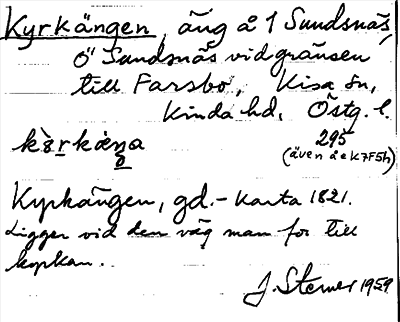 Kyrkängen, äng å 1 Sundsnäs,
Ö Sundsnäs vid gränsen
till Farsbo, Kisa sn,
Kinda hd, Östg. l.
295
(även å ek 7F5h)
Kyrkängen, gd. - Karta 1821.
Ligger vid den väg man for till
kyrkan.
J. Sterner 1959